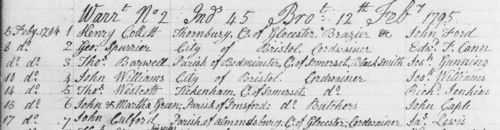 Warrt No 2 Ind 45 Brot 12th Feby 1795
5 Feby 1794 1 Henry Collett Thornbury, Co of Glocester Brazier & John Ford
8 do 2 Geo: Spurrier City of Bristol Cordwainer Edwd T. Cann
do do 3 Thos Barwell Parish of Bedminster, Co of Somerset, Black Smith Jos: Gunning
10 do 4 John Williams City of Bristol Cordwainer Jos: Williams
14 do 5 Thos Westcott Tickenham, Co of Somerset do Richd Jenkins
15 do 6 John & Martha Green, Parish of do Butchers John Cople
17 do 7 John Parish of Almondsbury, Co of Glocester, Cordwainer Jas: Lewis